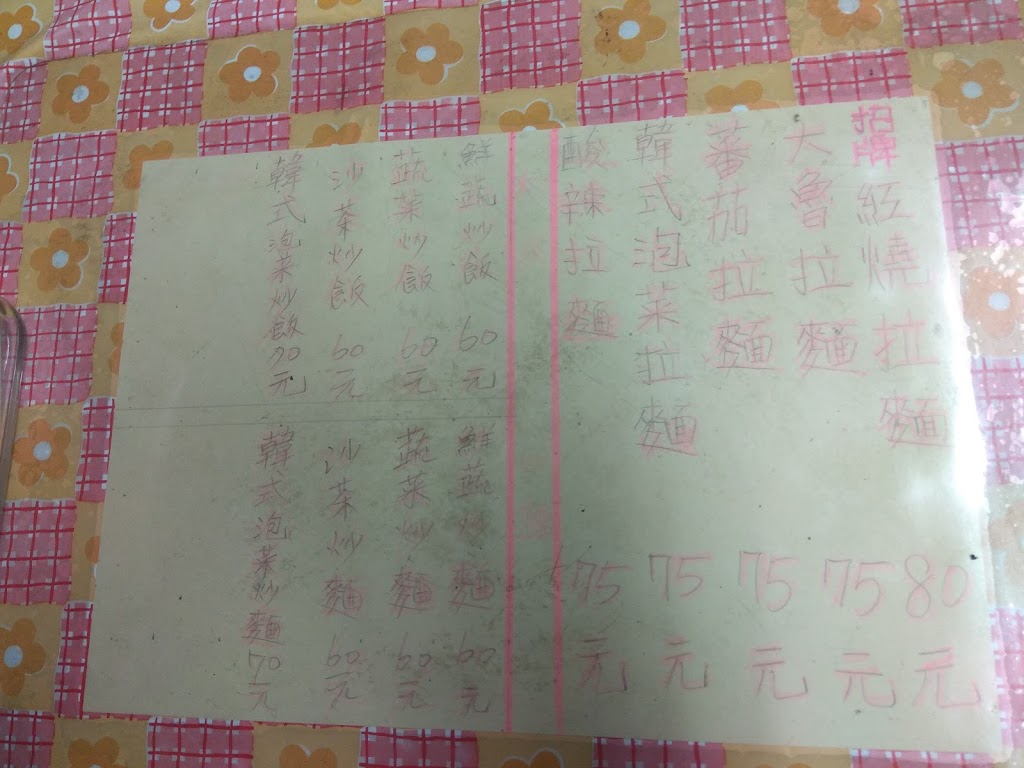 招牌紅燒拉麵 80元
大魯拉麵 75元
蕃茄拉麵 75元
韓式泡菜拉麵 75元
酸辣拉麵 75元
鮮蔬炒飯 60元
蔬菜炒飯 60元
沙茶炒飯 60元
韓式泡菜炒飯 70元
鮮蔬炒麵 60元
蔬菜炒麵 60元
沙茶炒麵 60元
韓式泡菜炒麵 70元